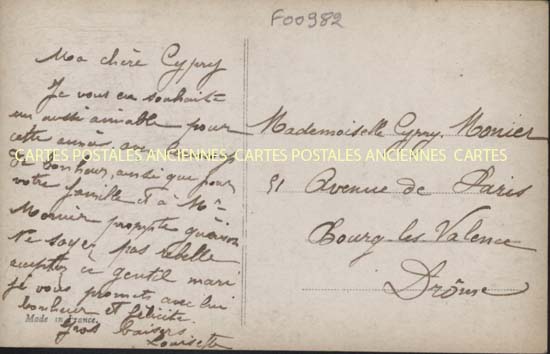 F00982
Ma chère Cypry
Je vous en souhaite
un aussi aimable pour
cette année
de bonheur ainsi que pour
votre famille et à Mr
Monier prompte guérison
Ne soyez pas rebelle
acceptez ce gentil mari
je vous promets avec lui
bonheur et félicité
Gros baisers
Louisette
Made in France.
Mademoiselle Cypry Monier
51 Avenue de Paris
Bourg-les-Valence
Drôme
CARTES POSTALES ANCIENNES CARTES POSTALES ANCIENNES CARTES